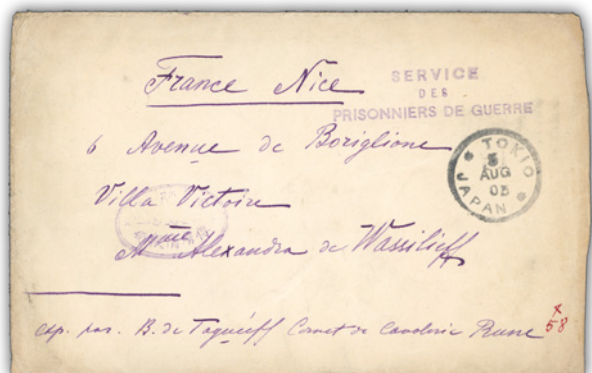 France Nice
SERVICE
DES
PRISONNIERS DE GUERRE
6 Avenue de Boriglione
TOKIO
5
AUG
05
JAPAN
Villa Victoire
Mme Alexandra de Wassilieff
exp. par. B. de Cornet de Cavalerie Russe
58